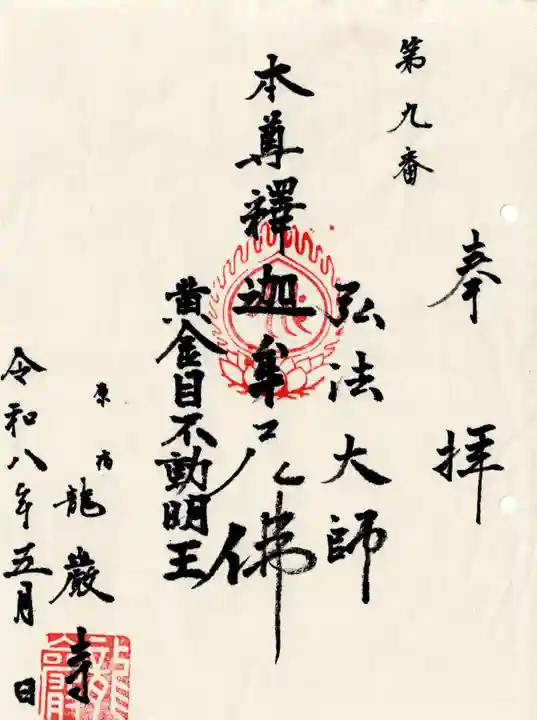 奉拝
第九番
弘法大師
本尊釋迦牟尼佛
黄金目不動明王
原宿
龍巖寺
令和八年五月 日